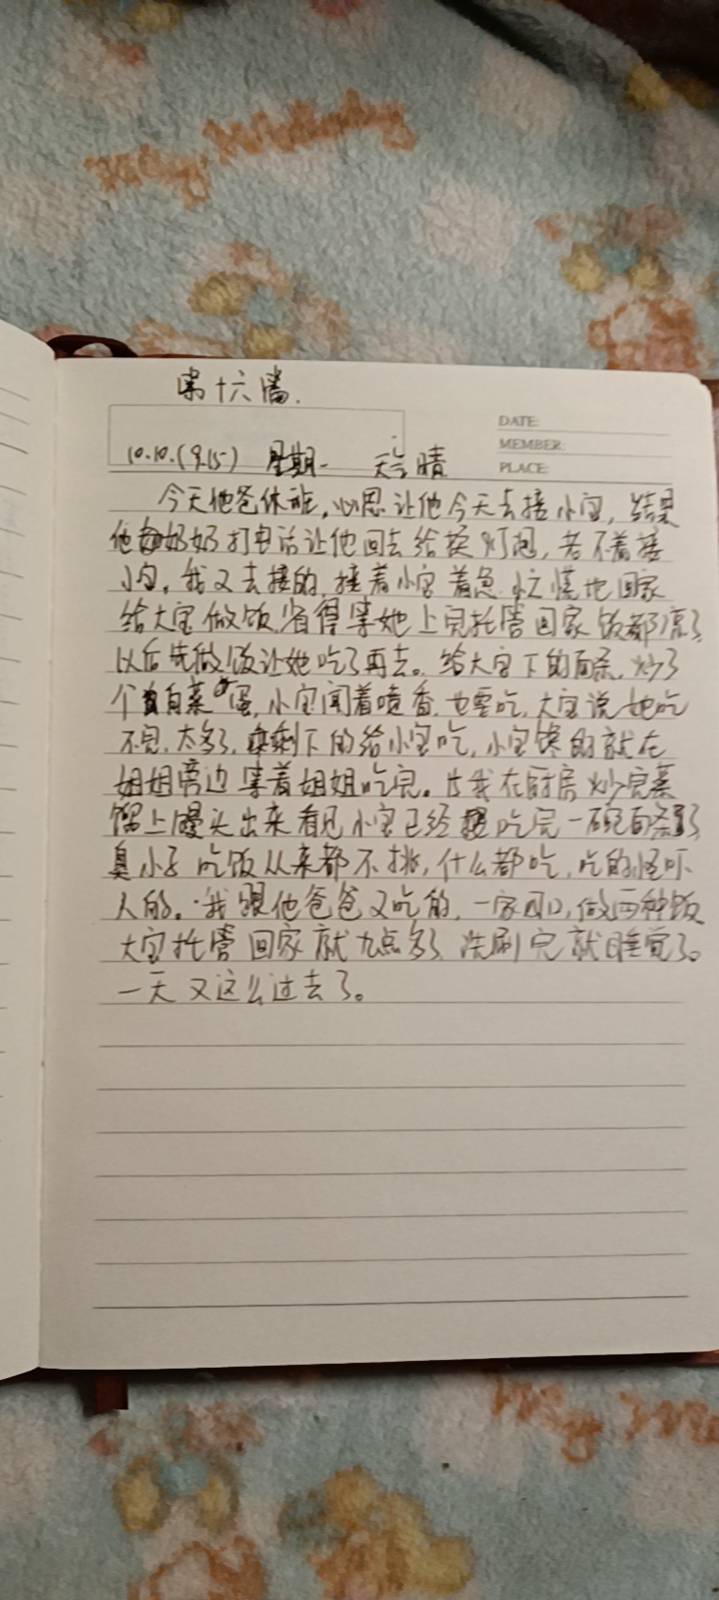 第十六篇.
DATE:
MEMBER:
10.10.(9.15) 星期一 天气晴
PLACE:
今天他爸休班,心思让他今天去接小宝,结果
他奶奶打电话让他回去给换灯泡,若不着接
小宝,我又去接的,接着小宝着急忙慌地回家
给大宝做饭,省得等她上完托管回家饭都凉了
以后先做饭让她吃了再去。给大宝下的面条,炒了
个白菜 蛋,小宝闻着喷香,也要吃,大宝说她吃
不完,太多了,剩下的给小宝吃,小宝馋的就在
姐姐旁边等着姐姐吃完。我在厨房炒完菜
馏上馒头出来看见小宝已经吃完一碗面条了
臭小子吃饭从来都不挑,什么都吃,吃的怪吓
人的。我跟他爸爸又吃的,一家四口,做两种饭
大宝托管回家就九点多了洗刷完就睡觉了。
一天又这么过去了。